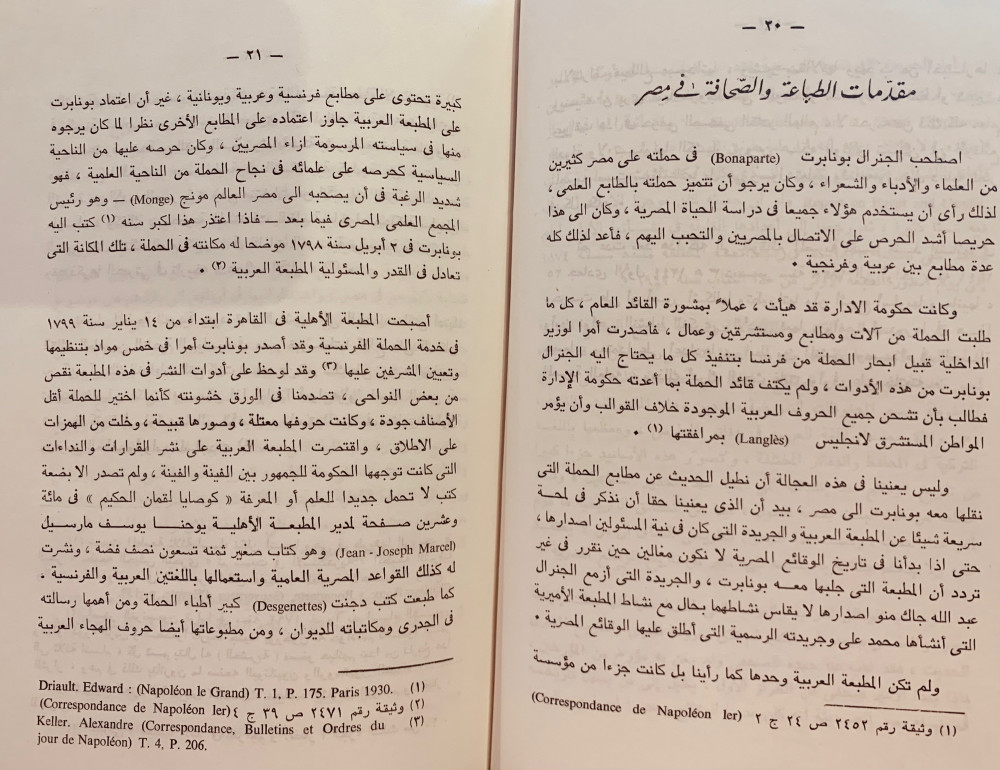 — ٢٠ —
مقدمات الطباعة والصحافة في مصر
اصطحب الجنرال بونابرت (Bonaparte) فى حملته على مصر كثيرين
من العلماء والأدباء والشعراء ، وكان يرجو أن تتميز حملته بالطابع العلمى ،
لذلك رأى أن يستخدم هؤلاء جميعا فى دراسة الحياة المصرية ، وكان الى هذا
حريصا أشد الحرص على الاتصال بالمصريين والتحبب اليهم ، فأعد لذلك كله
عدة مطابع بين عربية وفرنجية •
وكانت حكومة الادارة قد هيأت ، عملاً بمشورة القائد العام ، كل ما
طلبت الحملة من آلات ومطابع ومستشرقين وعمال ، فأصدرت أمرا لوزير
الداخلية قبيل ابحار الحملة من فرنسا بتنفيذ كل ما يحتاج اليه الجنرال
بونابرت من هذه الأدوات ، ولم يكتف قائد الحملة بما أعدته حكومة الإدارة
فطالب بأن تشحن جميع الحروف العربية الموجودة خلاف القوالب وأن يؤمر
المواطن المستشرق لانجليس (Langlès) بمرافقتها (١) •
وليس يعنينا فى هذه العجالة أن نطيل الحديث عن مطابع الحملة التى
نقلها معه بونابرت الى مصر ، بيد أن الذى يعنينا حقا أن نذكر فى لمحة
سريعة شيئا عن المطبعة العربية والجريدة التى كان فى نية المسئولين اصدارها ،
حتى اذا بدأنا فى تاريخ الوقائع المصرية لا نكون مغالين حين نقرر فى غير
تردد أن المطبعة التى جلبها معه بونابرت ، والجريدة التى أزمع الجنرال
عبد الله جاك منو اصدارها لا يقاس نشاطهما بحال مع نشاط المطبعة الأميرية
التى أنشأها محمد على وجريدته الرسمية التى أطلق عليها الوقائع المصرية •
ولم تكن المطبعة العربية وحدها كما رأينا بل كانت جزءا من مؤسسة
(١) وثيقة رقم ٢٤٥٢ ص ٢٤ ج ٢ (Correspondance de Napoléon Ier)
— ٢١ —
كبيرة تحتوى على مطابع فرنسية وعربية ويونانية ، غير أن اعتماد بونابرت
على المطبعة العربية جاوز اعتماده على المطابع الأخرى نظرا لما كان يرجوه
منها فى سياسته المرسومة ازاء المصريين ، وكان حرصه عليها من الناحية
السياسية كحرصه على علمائه فى نجاح الحملة من الناحية العلمية ، فهو
شديد الرغبة فى أن يصحبه الى مصر العالم مونج (Monge) — وهو رئيس
المجمع العلمى المصرى فيما بعد — فاذا اعتذر هذا لكبر سنه (١) كتب اليه
بونابرت فى ٢ أبريل سنة ١٧٩٨ موضحا له مكانته فى الحملة ، تلك المكانة التى
تعادل فى القدر والمسئولية المطبعة العربية (٢) •
أصبحت المطبعة الأهلية فى القاهرة ابتداء من ١٤ يناير سنة ١٧٩٩
فى خدمة الحملة الفرنسية وقد أصدر بونابرت أمرا فى خمس مواد بتنظيمها
وتعيين المشرفين عليها (٣) وقد لوحظ على أدوات النشر فى هذه المطبعة نقص
من بعض النواحى ، تصدمنا فى الورق خشونته كأنما اختير للحملة أقل
الأصناف جودة ، وكانت حروفها معتلة ، وصورها قبيحة ، وخلت من الهمزات
على الاطلاق ، واقتصرت المطبعة العربية على نشر القرارات والنداءات
التى كانت توجهها الحكومة للجمهور بين الفينة والفينة ، ولم تصدر الا بضعة
كتب لا تحمل جديدا للعلم أو المعرفة « كوصايا لقمان الحكيم » فى مائة
وعشرين صفحة لمدير المطبعة الأهلية يوحنا يوسف مارسيل
(Jean - Joseph Marcel) وهو كتاب صغير ثمنه تسعون نصف فضة ، ونشرت
له كذلك القواعد المصرية العامية واستعمالها باللغتين العربية والفرنسية •
كما طبعت كتب دجنت (Desgenettes) كبير أطباء الحملة ومن أهمها رسالته
فى الجدرى ومكاتباته للديوان ، ومن مطبوعاتها أيضا حروف الهجاء العربية
(١) Driault. Edward : (Napoléon le Grand) T. 1, P. 175. Paris 1930.
(٢) وثيقة رقم ٢٤٧١ ص ٣٩ ج ٤ (Correspondance de Napoléon Ier)
(٣) Keller. Alexandre (Correspondance, Bulletins et Ordres du
jour de Napoléon) T. 4, P. 206.